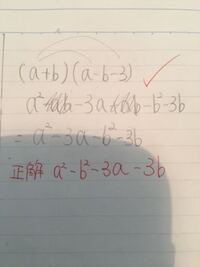 (a+b)(a-b-3)
a²-ab-3a+ab-b²-3b
= a²-3a-b²-3b
正解 a²-b²-3a-3b